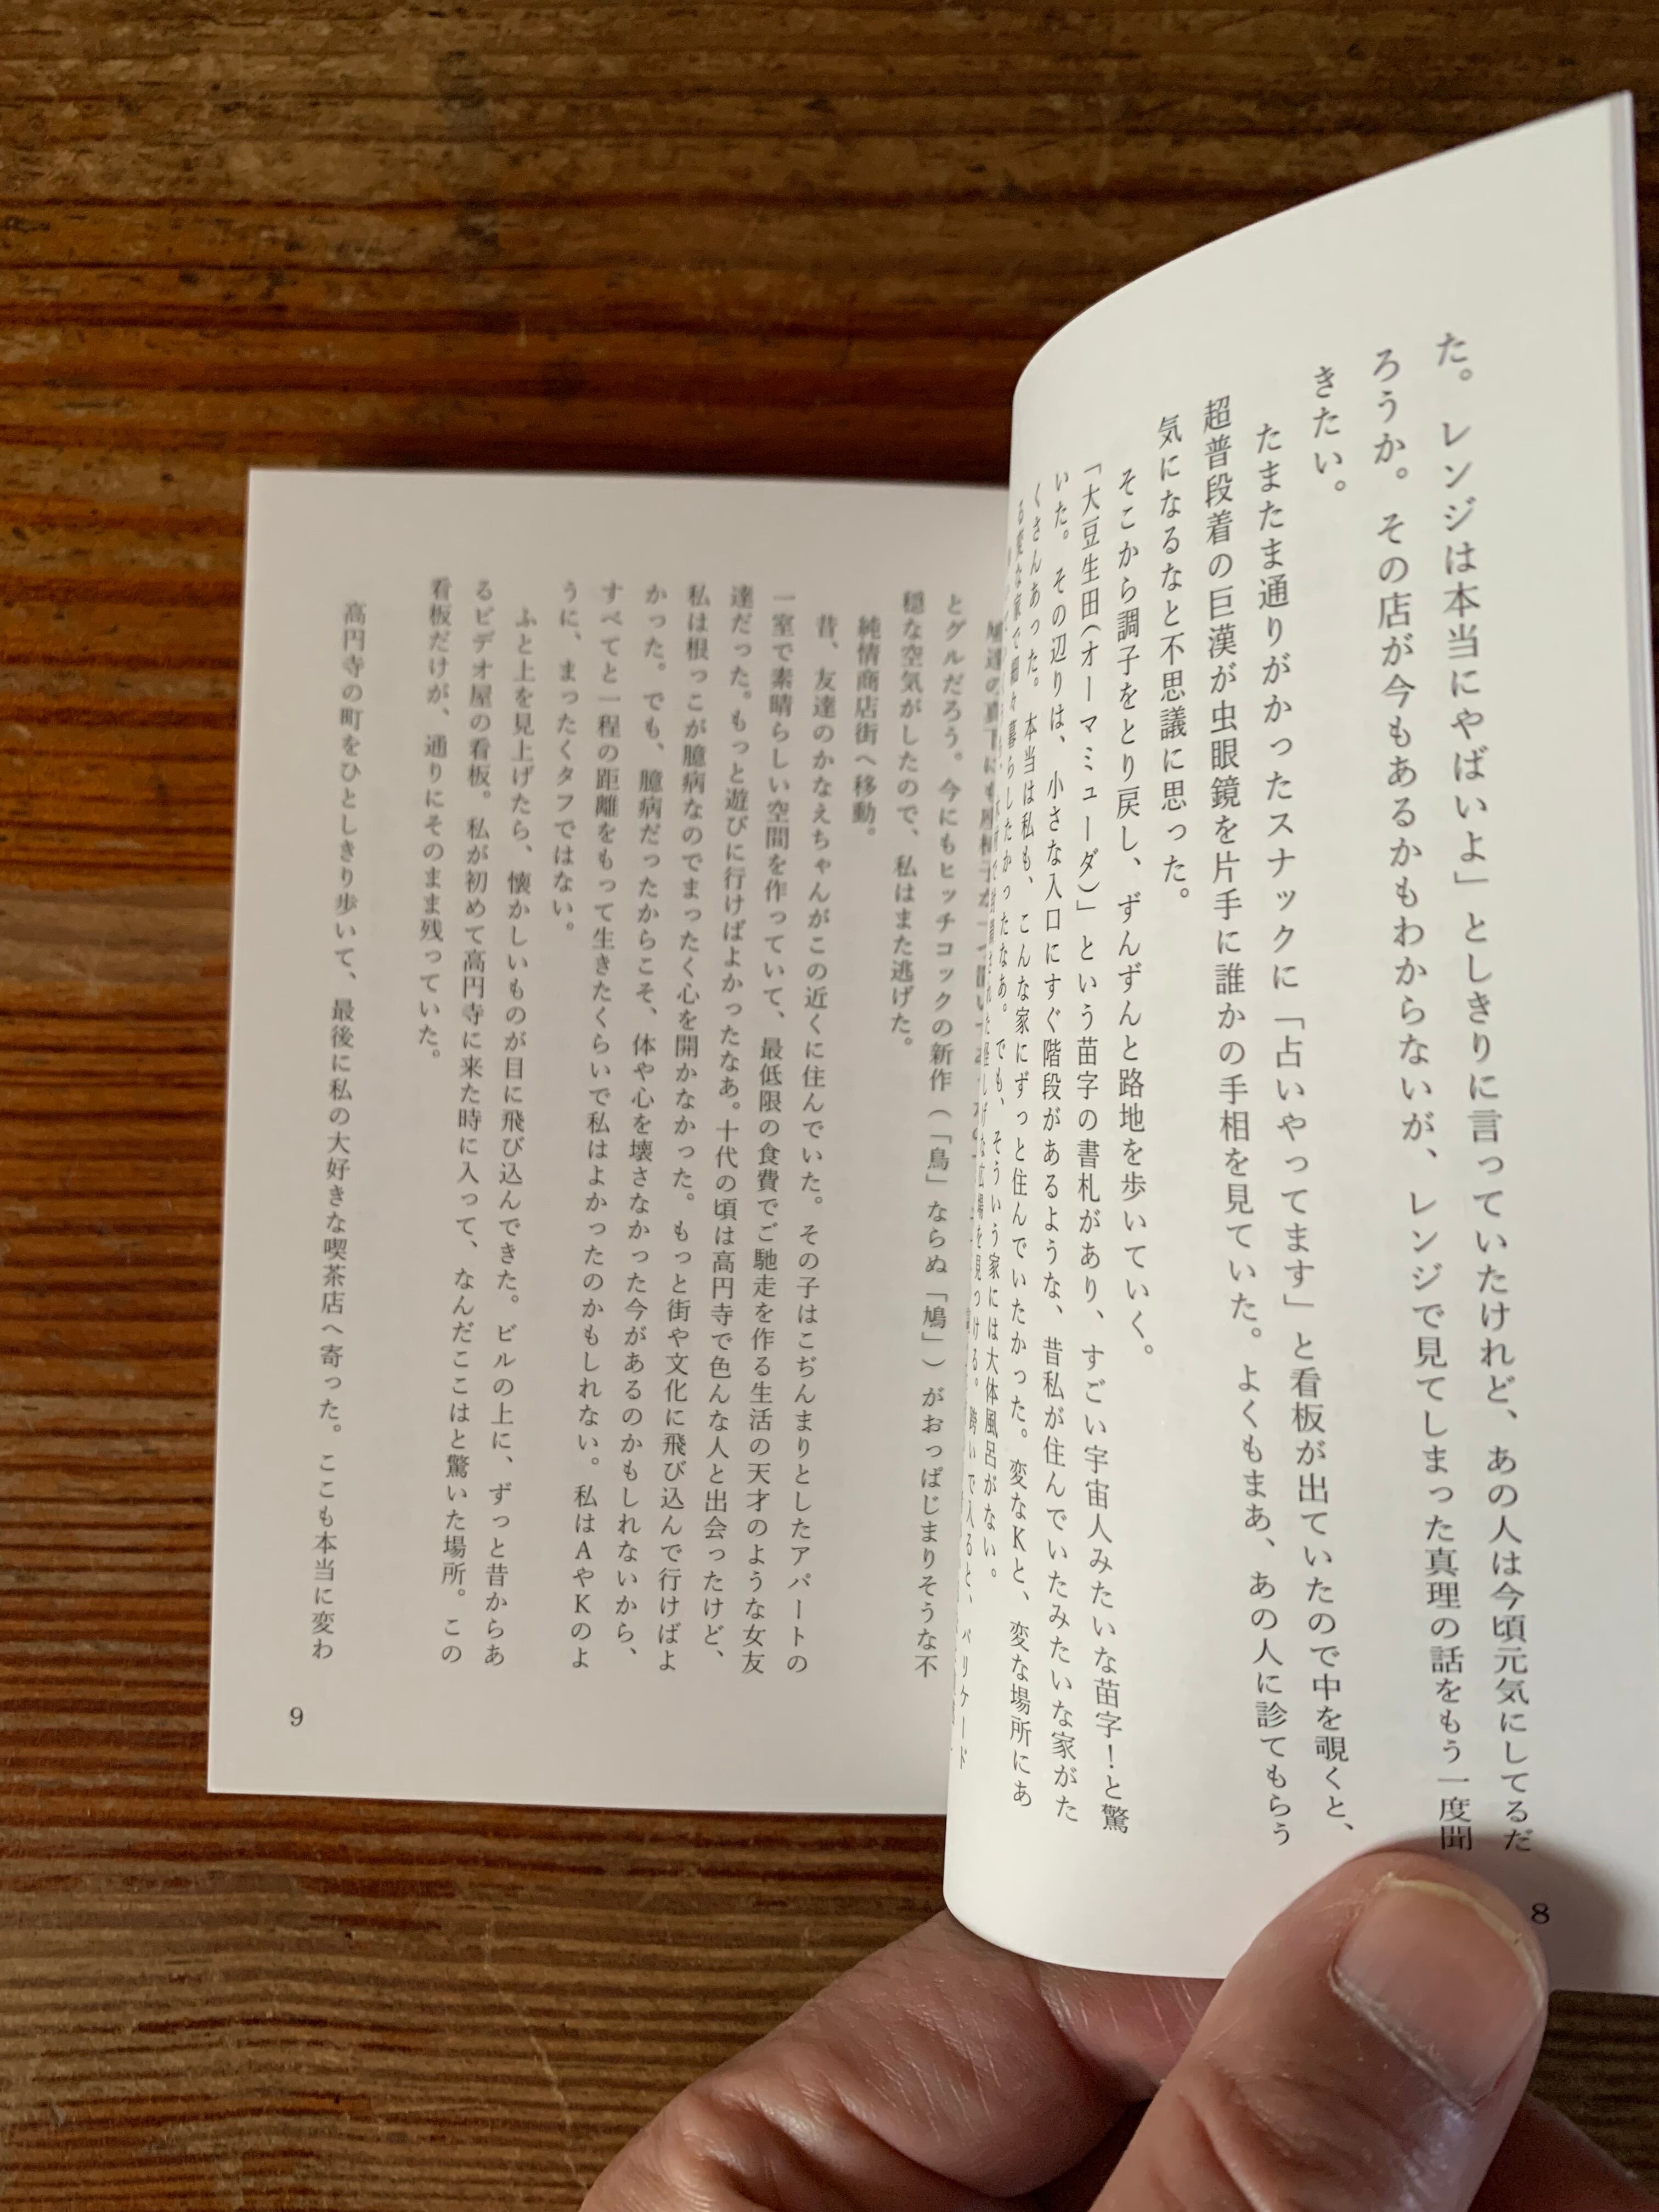 た。レンジは本当にやばいよ」としきりに言っていたけれど、あの人は今頃元気にしてるだ
ろうか。その店が今もあるかもわからないが、レンジで見てしまった真理の話をもう一度聞
きたい。
たまたま通りがかったスナックに「占いやってます」と看板が出ていたので中を覗くと、
超普段着の巨漢が虫眼鏡を片手に誰かの手相を見ていた。よくもまあ、あの人に診てもらう
気になるなと不思議に思った。
そこから調子をとり戻し、ずんずんと路地を歩いていく。
「大豆生田(オーマミューダ)」という苗字の書札があり、すごい宇宙人みたいな苗字!と驚
いた。その辺りは、小さな入口にすぐ階段があるような、昔私が住んでいたみたいな家がた
くさんあった。本当は私も、こんな家にずっと住んでいたかった。変なKと、変な場所にあ
る変な家で細々暮らしたかったなあ。でも、そういう家には大体風呂がない。
を見つける。跨いで入ると、バリケード
8
とグルだろう。今にもヒッチコックの新作(「鳥」ならぬ「鳩」)がおっぱじまりそうな不
穏な空気がしたので、私はまた逃げた。
純情商店街へ移動。
昔、友達のかなえちゃんがこの近くに住んでいた。その子はこぢんまりとしたアパートの
一室で素晴らしい空間を作っていて、最低限の食費でご馳走を作る生活の天才のような女友
達だった。もっと遊びに行けばよかったなあ。十代の頃は高円寺で色んな人と出会ったけど、
私は根っこが臆病なのでまったく心を開かなかった。もっと街や文化に飛び込んで行けばよ
かった。でも、臆病だったからこそ、体や心を壊さなかった今があるのかもしれないから、
すべてと一程の距離をもって生きたくらいで私はよかったのかもしれない。私はAやKのよ
うに、まったくタフではない。
ふと上を見上げたら、懐かしいものが目に飛び込んできた。ビルの上に、ずっと昔からあ
るビデオ屋の看板。私が初めて高円寺に来た時に入って、なんだここはと驚いた場所。この
看板だけが、通りにそのまま残っていた。
高円寺の町をひとしきり歩いて、最後に私の大好きな喫茶店へ寄った。ここも本当に変わ
9